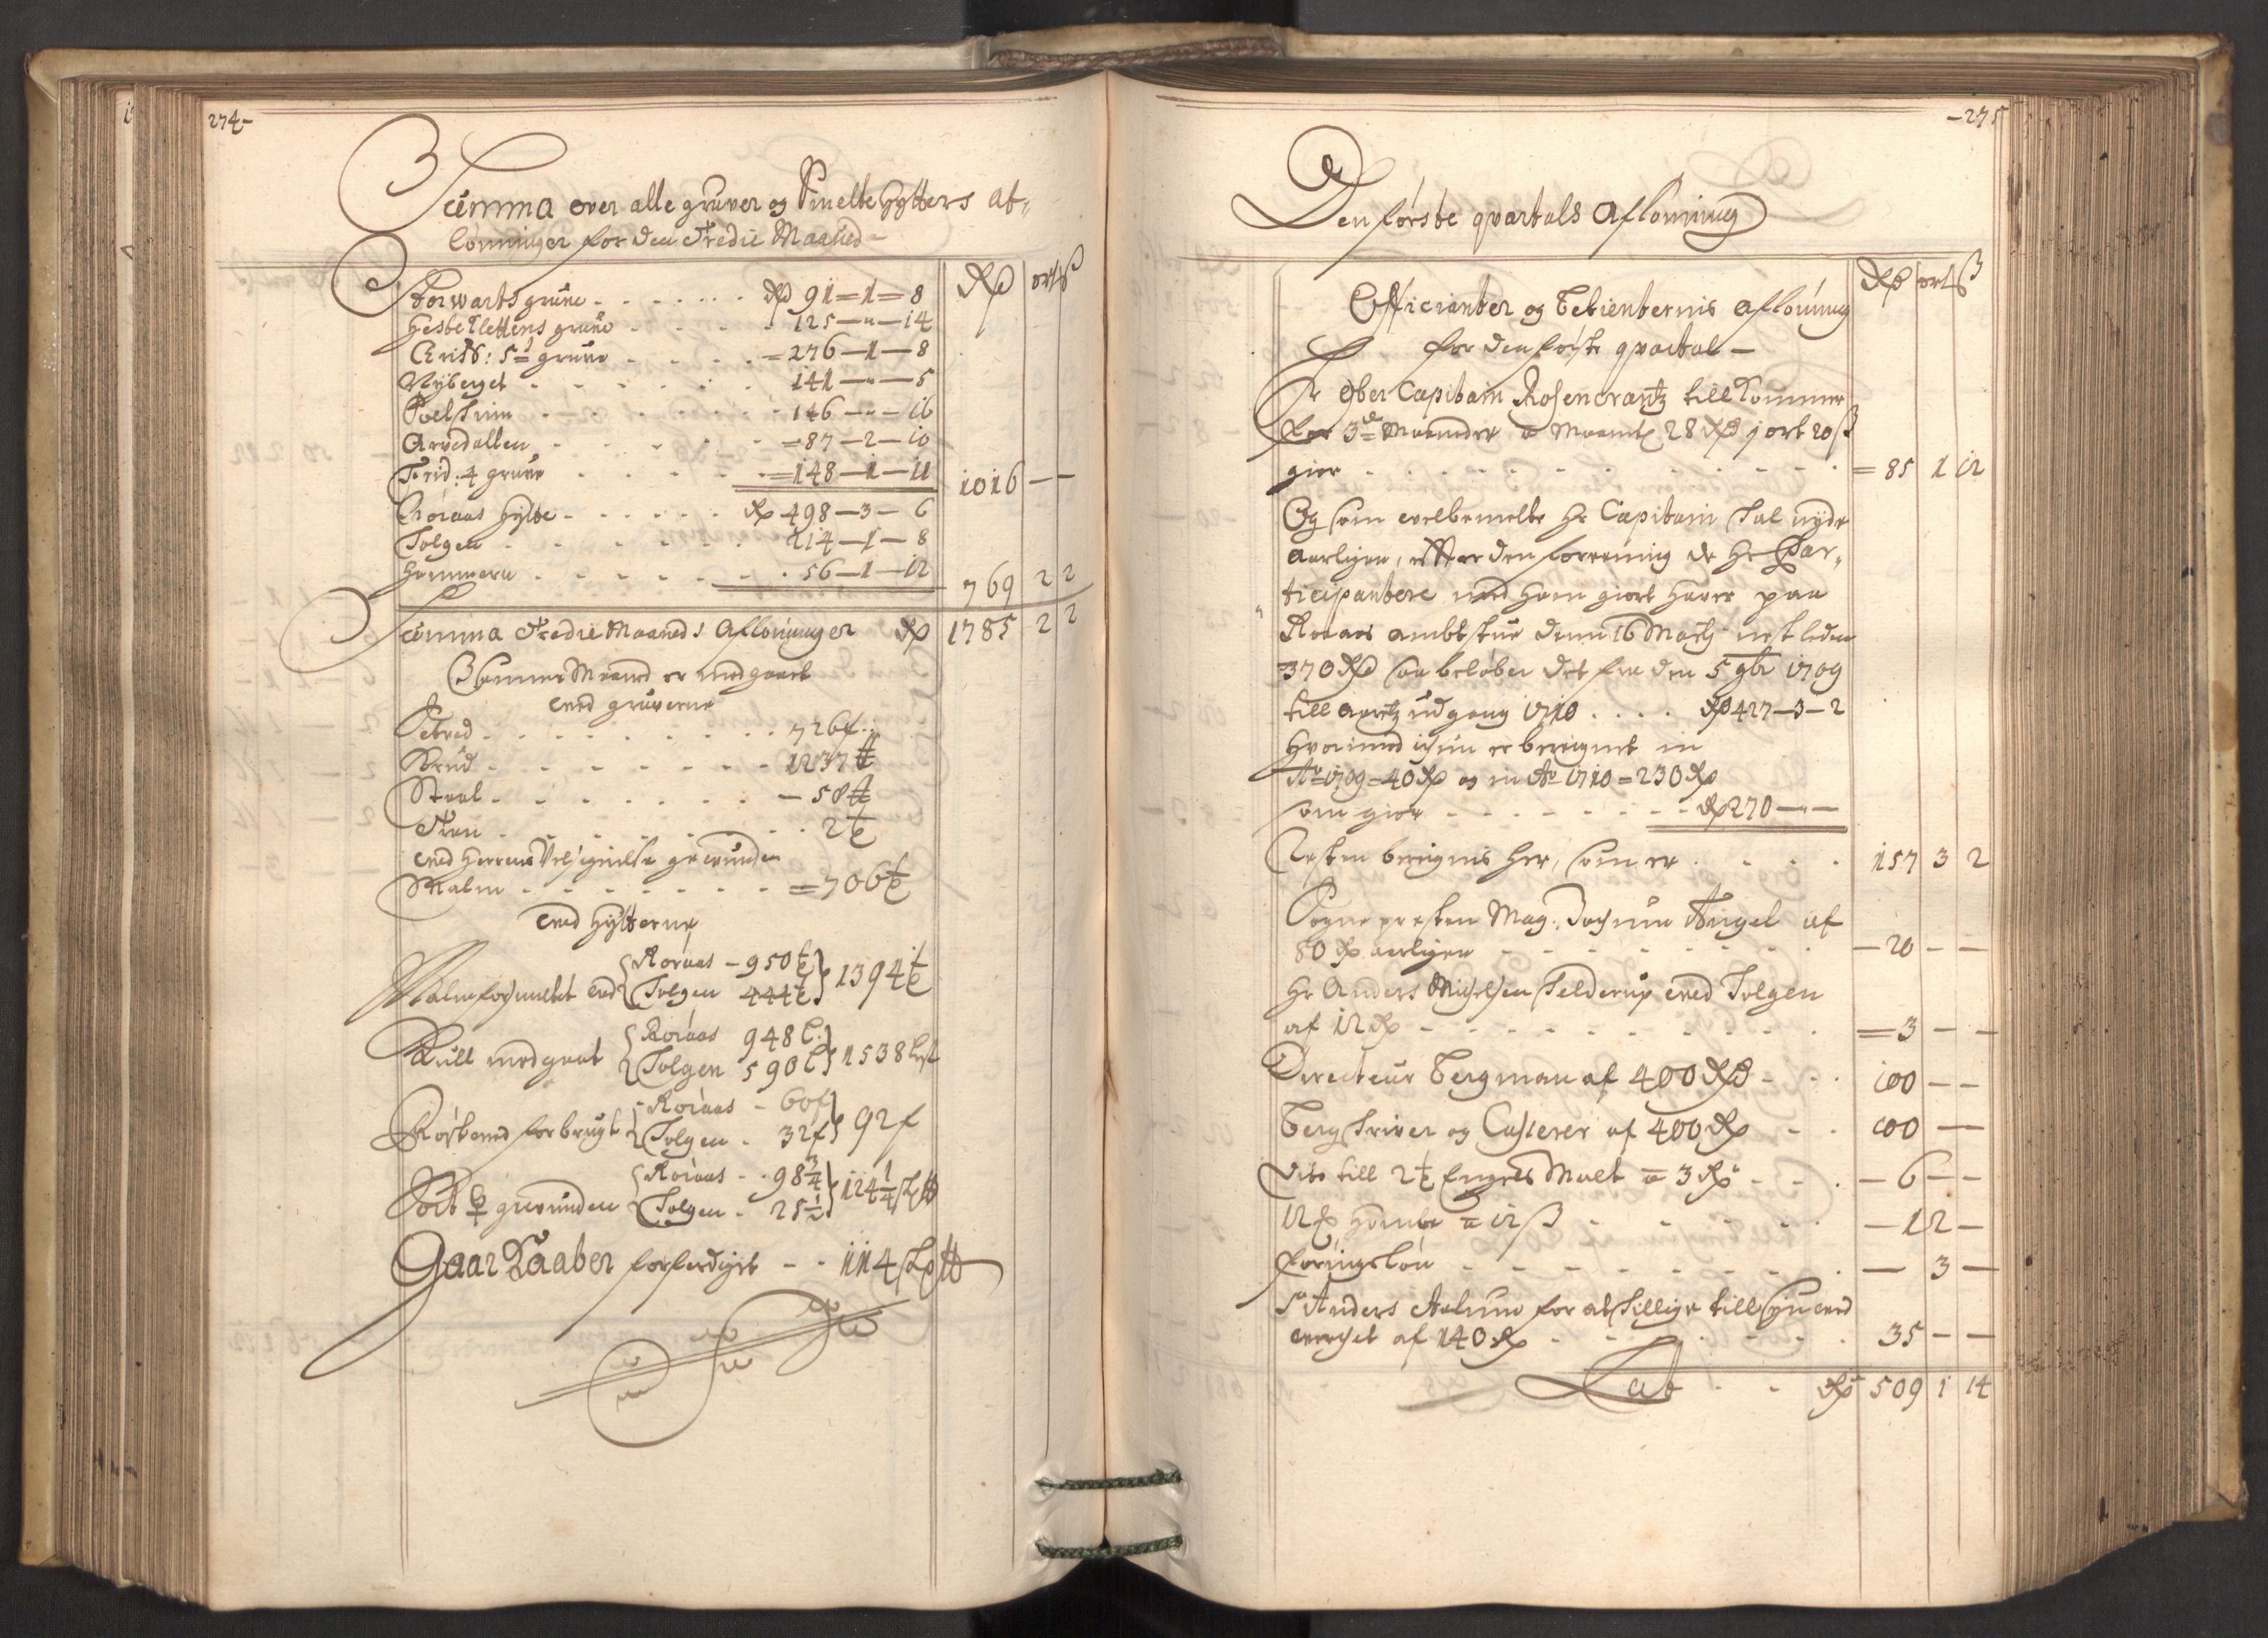 274-
Summa over alle gruver og Smelte Hytters af-
lønninger for den Tredie Maaned-
Rdr ort ß
Storwarts grüve - - - Rdr 91=1=8
Hestkletten grüve - - - 125-"-14
Christ: 5te grüve - - - =276-1-8
Nÿberget - - - 141-"-5
Solskin - - - 146-"-16
Arvedallen - - - =87-2-10
Frid: 4 grüve - - - =148-1-11 1016 - -
Røraas Hÿtte - - - Rdr 498-3-6
Tolgen - - - 214-1-8
Hammern - - - 56-1-12 769 2 2
Summa Tredie Maaneds Afløninger Rdr 1785 2 2
Denne Maaned er medgaaet
ved grüverne
Setved - - - 726 f:
Krud - - - 1237 ℔
Staal - - - -50 ℔
- - - 2 t
ved Herrens Velsignelse gevunden
Malm - - - =706 t
ved Hÿtterne
Malm forsmeltet ved { Røraas - 950 t } 1394 t
{ Tolgen 444 t }
Kull medgaaet { Røraas 948 l: } 1538 lest
{ Tolgen 590 l }
Røstved forbrugt { Røraas - 60 f } 92 f
{ Tolgen - 32 f }
Sort ♀ gevunden { Røraas - - 98 3/4 } 124 1/4 S℔
{ Tolgen - 25 1/2 }
Gaar Kaaber forferdiget - - 114 S℔
-275
Den første qvartals Afløning
Rdr ort ß
Officianter og Betienternis Afløning
for den første qvartal -
Hr Ober Capitain Rosencrantz tillkommer
for 3de Maaneder a Maanetl 28 Rdr 1 ort 20 ß
giør - - - =85 1 12
Og som velbemelte Hr Capitain skal nÿde
aarligen, efter den foreening de Hr Par-
ticipantere med ham giort haver paa
Røraas ambtstue denn 16 Martÿ nest leden
370 Rdr saa beløber det fra den 5 9br 1709
till aaretz udgang 1710 . . . . Rdr 427-3-2
Hvorimod er beregnet in
Ao 1709=40 Rdr og in Ao 1710=230 Rdr
som giør - - - Rdr 270 - " -
Resten beregnis her, som er . . . . 157 3 2
Sogne presten Mag: Jochum Angel af
80 Rdr aarligen - - - -20 - -
Hr Anders Michelsen Felderup ved Tolgen
af 12 Rdr - - - =3 - -
Directeur Bergman af 400 Rdr - - . 100 - -
Bergskriver og Casserer af 400 Rdr - - . 100 -
dito till 2 t Engels Malt a 3 Rdr - - . -6 - -
12 ℔ Homle a 12 ß - - - -12-
føringsløn - - - - 3 -
Sr Anders for at tillsÿn ved
verchet af 140 Rdr - - - 35 - -
Lat - - Rdr 509 1 14